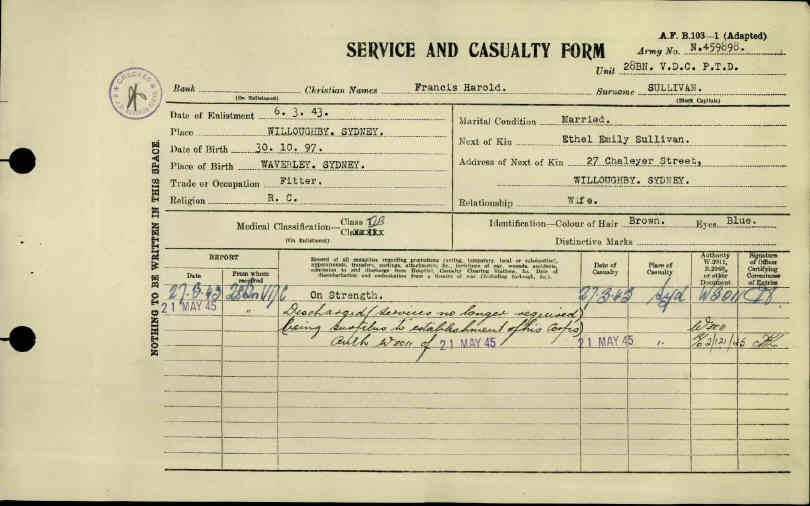 A.F. B.103—1 (Adapted)
SERVICE AND CASUALTY FORM
Army No. N.459898.
Unit 28BN. V.D.C. P.T.D.
CHECKED
Rank (On Enlistment) Christian Names Francis Harold. Surname SULLIVAN. (Block Capitals)
Date of Enlistment 6. 3. 43.
Place WILLOUGHBY. SYDNEY.
Date of Birth 30. 10. 97.
Place of Birth WAVERLEY. SYDNEY.
Trade or Occupation Fitter.
Religion R. C.
Marital Condition Married.
Next of Kin Ethel Emily Sullivan.
Address of Next of Kin 27 Chaleyer Street,
WILLOUGHBY. SYDNEY.
Relationship Wife.
Medical Classification— Class
(On Enlistment)
Identification—Colour of Hair Brown. Eyes Blue.
Distinctive Marks
NOTHING TO BE WRITTEN IN THIS SPACE.
REPORT
Date
From whom received
Record of all casualties regarding promotions (acting, temporary, local or substantive), appointments, transfers, postings, attachments, &c., forfeiture of pay, wounds, accidents, admission to and discharge from Hospital, Casualty Clearing Stations, &c. Date of disembarkation and embarkation from a theatre of war (including furlough, &c.).
Date of Casualty
Place of Casualty
Authority W.3011, B.2069, or other Document
Signature of Officer Certifying Correctness of Entries
27.3.43 28Bn VDC On Strength. 27.3.43 Syd W3011
21 MAY 45 " Discharged (services no longer required)
being surplus to establishment of his Corps)
Auth W3011 of 21 MAY 45 21 MAY 45 " W3011
2/121/45